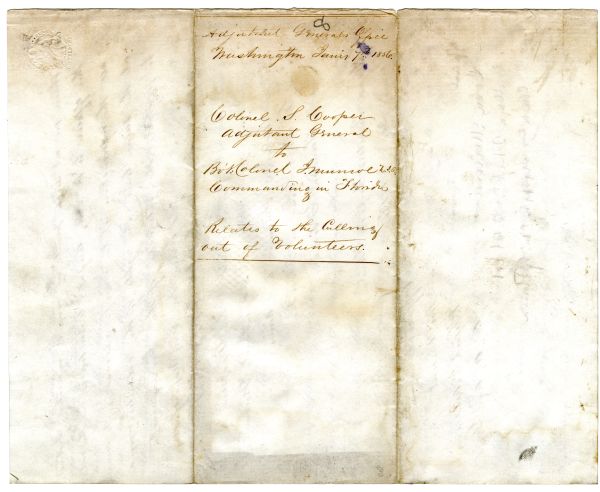 8
Adjutant Generals Office
Washington 1856
Colonel S. Cooper
Adjutant General
to
Bv't Colonel J. Munroe
Commanding in Florida
Relates to the Calling
out of Volunteers.